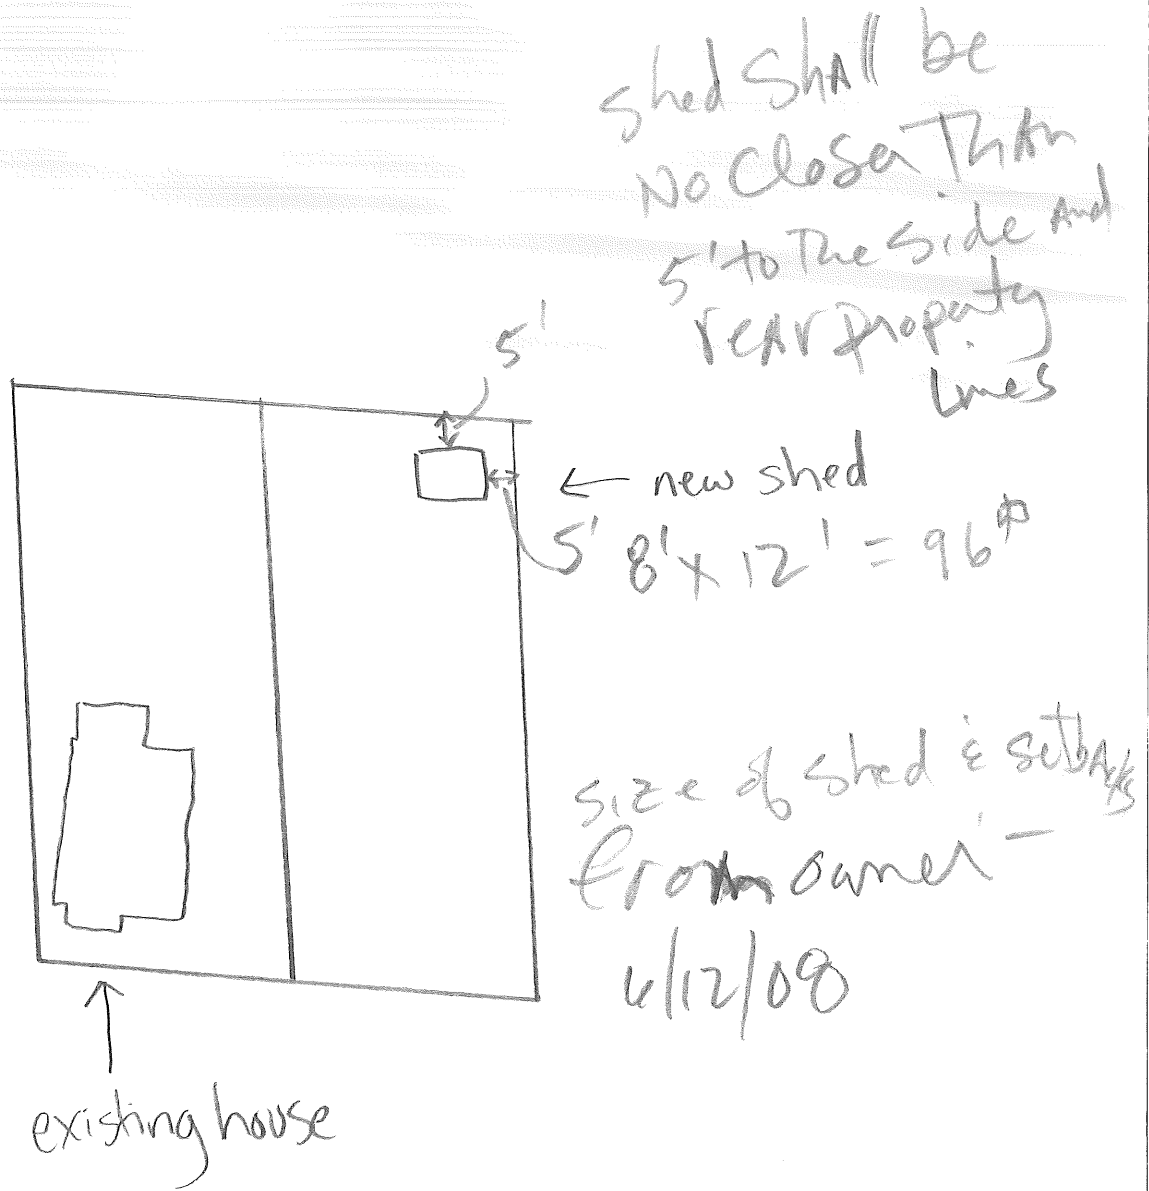 shed shall be
No Closer Than
5' to The Side And
rear Property
Lines
5'
← new shed
5' 8' x 12' = 96 ⏍
size of shed & setbacks
from owner -
6/12/08
existing house